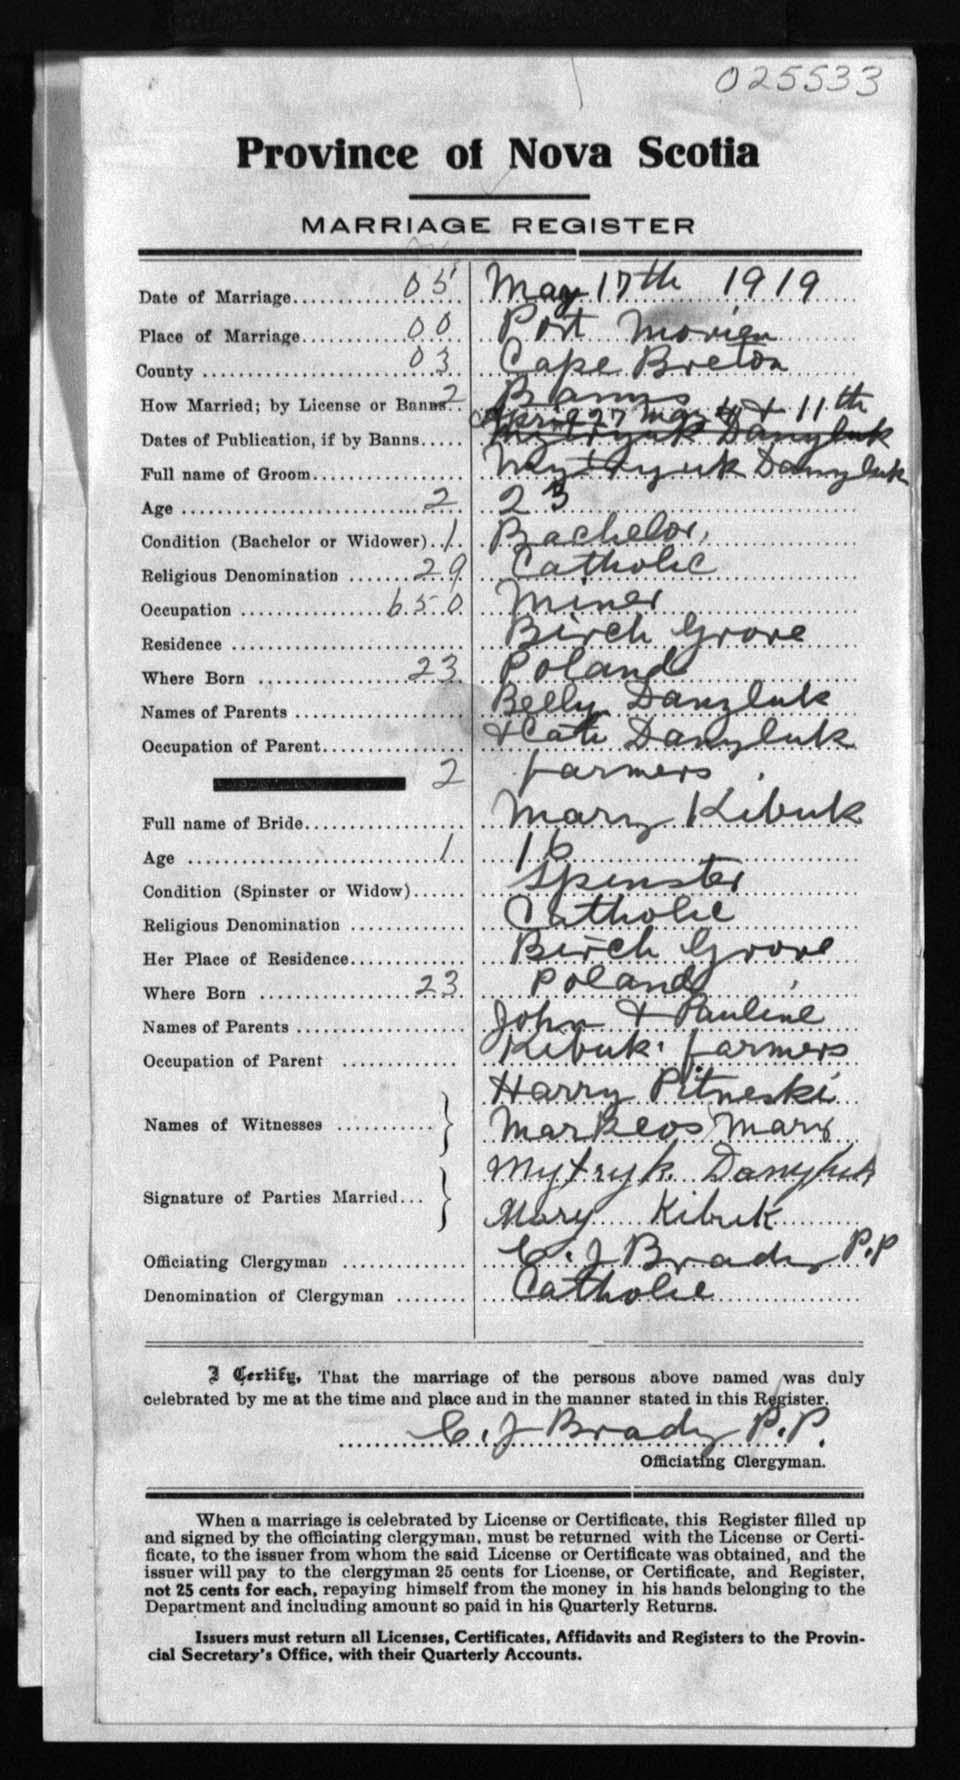 025533
Province of Nova Scotia
MARRIAGE REGISTER
Date of Marriage 05 May 17th 1919
Place of Marriage 00 Port Morien
County 03 Cape Breton
How Married; by License or Banns 2 Banns
April 27 May 4 & 11th
Dates of Publication, if by Banns Mytryuk Danyluk
Full name of Groom Mytryuk Danyluk
Age 2 23
Condition (Bachelor or Widower) 1 Bachelor
Religious Denomination 29 Catholic
Occupation 650 Miner
Residence Birch Grove
Where Born 23 Poland
Names of Parents Belly Danyluk
Occupation of Parent & Cate Danyluk
2 farmers
Full name of Bride Mary Kibuk
Age 1 16
Condition (Spinster or Widow) Spinster
Religious Denomination Catholic
Her Place of Residence Birch Grove
Where Born 23 Poland
Names of Parents John & Pauline
Occupation of Parent Kibuk. farmers
Harry Pitneski
Names of Witnesses Markeos Mary
Mytryk Danyluk
Signature of Parties Married
Mary Kibuk
Officiating Clergyman C. J Brady P.P
Denomination of Clergyman Catholic
I Certify, That the marriage of the persons above named was duly
celebrated by me at the time and place and in the manner stated in this Register.
C. J Brady P.P.
Officiating Clergyman.
When a marriage is celebrated by License or Certificate, this Register filled up
and signed by the officiating clergyman, must be returned with the License or Certi-
ficate, to the issuer from whom the said License or Certificate was obtained, and the
issuer will pay to the clergyman 25 cents for License, or Certificate, and Register,
not 25 cents for each, repaying himself from the money in his hands belonging to the
Department and including amount so paid in his Quarterly Returns.
Issuers must return all Licenses, Certificates, Affidavits and Registers to the Provin-
cial Secretary's Office, with their Quarterly Accounts.